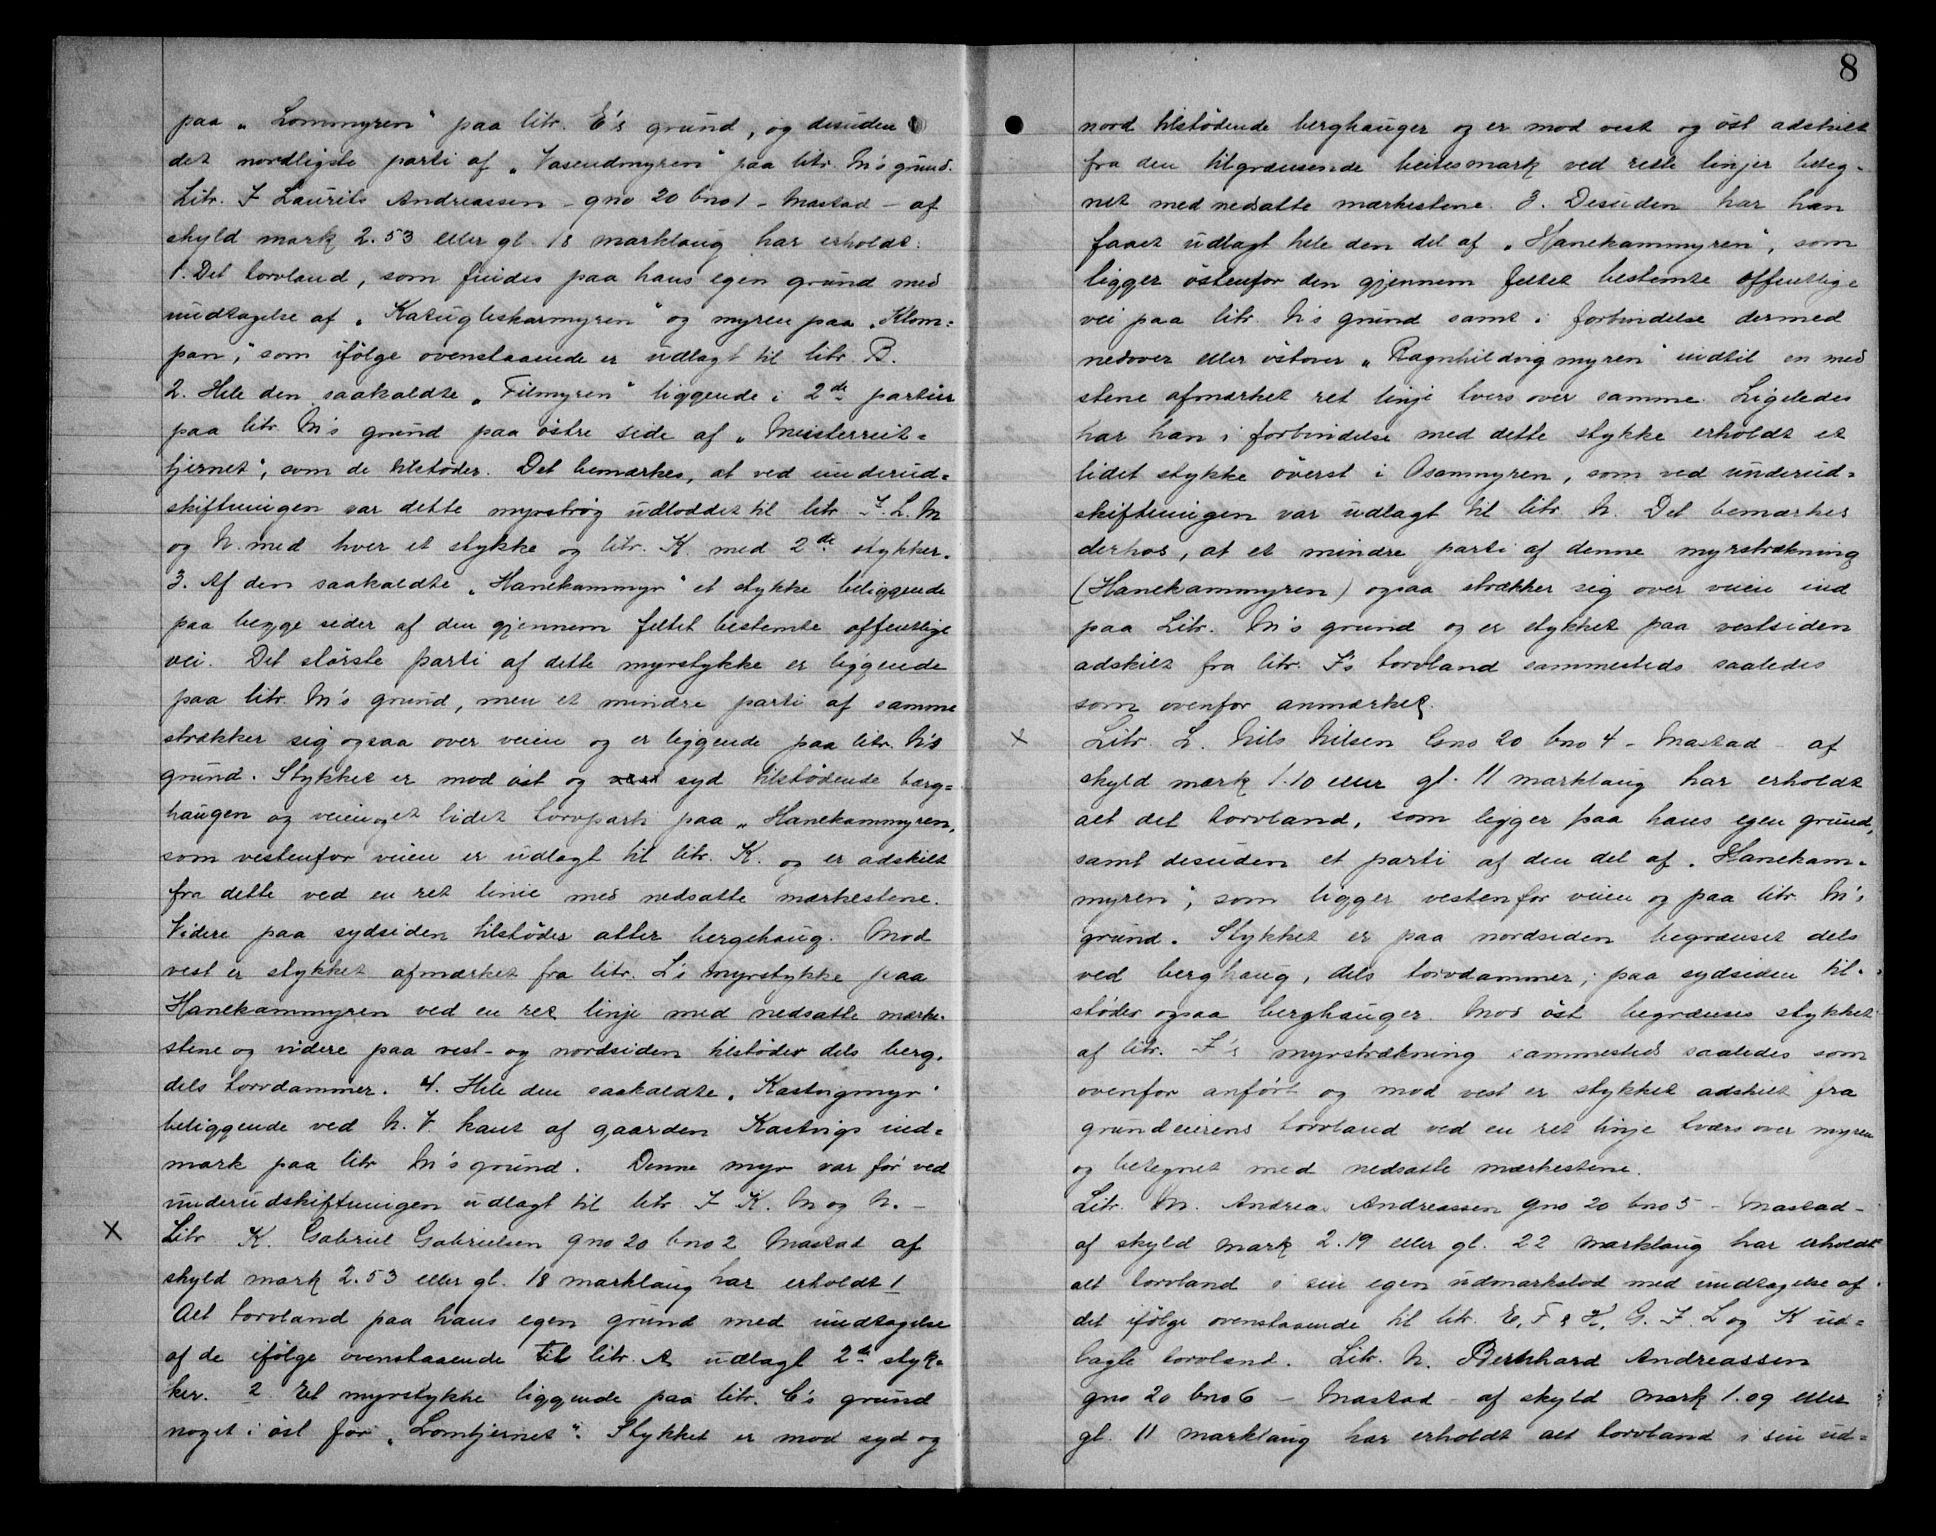 paa „Lommyren" paa litr. E's grund, og desuden
det nordligste parti af „Vasendmyren" paa litr. M's grund.
Litr. I Laurits Andreassen - gno 20 bno 1 - Mastad - af
skyld mark 2.53 eller gl. 18 marklaug har erholdt:
1. Det torvland, som findes paa hans egen grund med
undtagelse af „Katugleskarmyren" og myren paa „Klom=
pan," som ifølge ovenstaaende er udlagt til litr. B.
2. Hele den saakaldte „Filmyren" liggende i 2de partier
paa litr. M's grund paa østre side af „Meisterreit=
tjernet", som de tilstøder. Det bemærkes, at ved underud=
skiftningen var dette myrstrøg udloddet til litr. I. L. M
og N. med hver et stykke og litr. K. med 2de stykker.
3. Af den saakaldte „Hanekammyr" et stykke beliggende
paa begge sider af den gjennem feltet bestemte offentlige
vei. Det største parti af dette myrstykke er liggende
paa litr. N's grund, men et mindre parti af samme
strækker sig ogsaa over veien og er liggende paa litr. M's
grund. Stykket er mod øst og syd tilstødende berg=
haugen og veien og et lidet torvparti paa „Hanekammyren,
som vestenfor veien er udlagt til litr. K. og er adskilt
fra dette ved en ret linie med nedsatte mærkestene.
Videre paa sydsiden tilstøder atter bergehaug. Mod
vest er stykket afmærket fra litr. L's myrstykke paa
Hanekammyren ved en ret linje med nedsatte mærke-
stene og videre paa vest- og nordsiden tilstøder dels berg.
dels torvdammer. 4. Hele den saakaldte „Kastvigmyr"
beliggende ved N.V. kant af gaarden Kastvigs ind=
mark paa litr M's grund. Denne myr var før ved
underudskiftningen udlagt til litr. I K. M og N. -
X Litr K. Gabriel Gabrielsen gno 20 bno 2 Mastad af
skyld mark 2.53 eller gl. 18 marklaug har erholdt 1
Alt torvland paa hans egen grund med undtagelse
af de ifølge ovenstaaende til litr. A udlagt 2de styk-
ker. 2 Et myrstykke liggende paa litr. C's grund
noget i øst for „Lomtjernet". Stykket er mod syd og
8
nord tilstødende berghauger og er mod vest og øst adskilt
fra den tilgrænsende beitesmark ved rette linjer beteg-
net med nedsatte mærkestene. 3. Desuden har han
faaet udlagt hele den del af „Hanekammyren", som
ligger østenfor den gjennem feltet bestemte offentlige
vei paa litr. N's grund samt i forbindelse dermed
nedover eller østover „Ragnhildvigmyren" indtil en med
stene afmærket ret linje tvers over samme. Ligeledes
har han i forbindelse med dette stykke erholdt et
lidet stykke øverst i Osanmyren, som ved underud=
skiftningen var udlagt til litr N. Det bemærkes
derhos, at et mindre parti af denne myrstrækning
(Hanekammyren) ogsaa strækker sig over veien ind
paa Litr. M's grund og er stykket paa vestsiden
adskilt fra litr. I's torvland sammesteds saaledes
som ovenfor anmærket.
X Litr. L. Nils Nilsen Gno 20 bno 4 - Mastad - af
skyld mark 1.10 eller gl. 11 marklaug har erholdt
alt det torvland, som ligger paa hans egen grund,
samt desuden et parti af den del af „Hanekam-
myren", som ligger vestenfor veien og paa litr. M's
grund. Stykket er paa nordsiden begrænset dels
ved berghaug, dels torvdammer; paa sydsiden til-
støder ogsaa berghauger. Mod øst begrænses stykket
af litr. I's myrstrækning sammesteds saaledes som
ovenfor anført og mod vest er stykket adskilt fra
grundeierens torvland ved en ret linje tværs over myren
og betegnet med nedsatte mærkestene.
Litr. M. Andreas Andreassen gno 20 bno 5 - Mastad -
af skyld mark 2.19 eller gl. 22 marklaug har erholdt
alt torvland i sin egen udmarkslod med undtagelse af
det ifølge ovenstaaende til litr. E, F & H, G. I. L og K ud=
lagte torvland. Litr. N. Bernhard Andreassen
gno 20 bno 6 - Mastad - af skyld mark 1.09 eller
gl. 11 marklaug har erholdt alt torvland i sin ud=